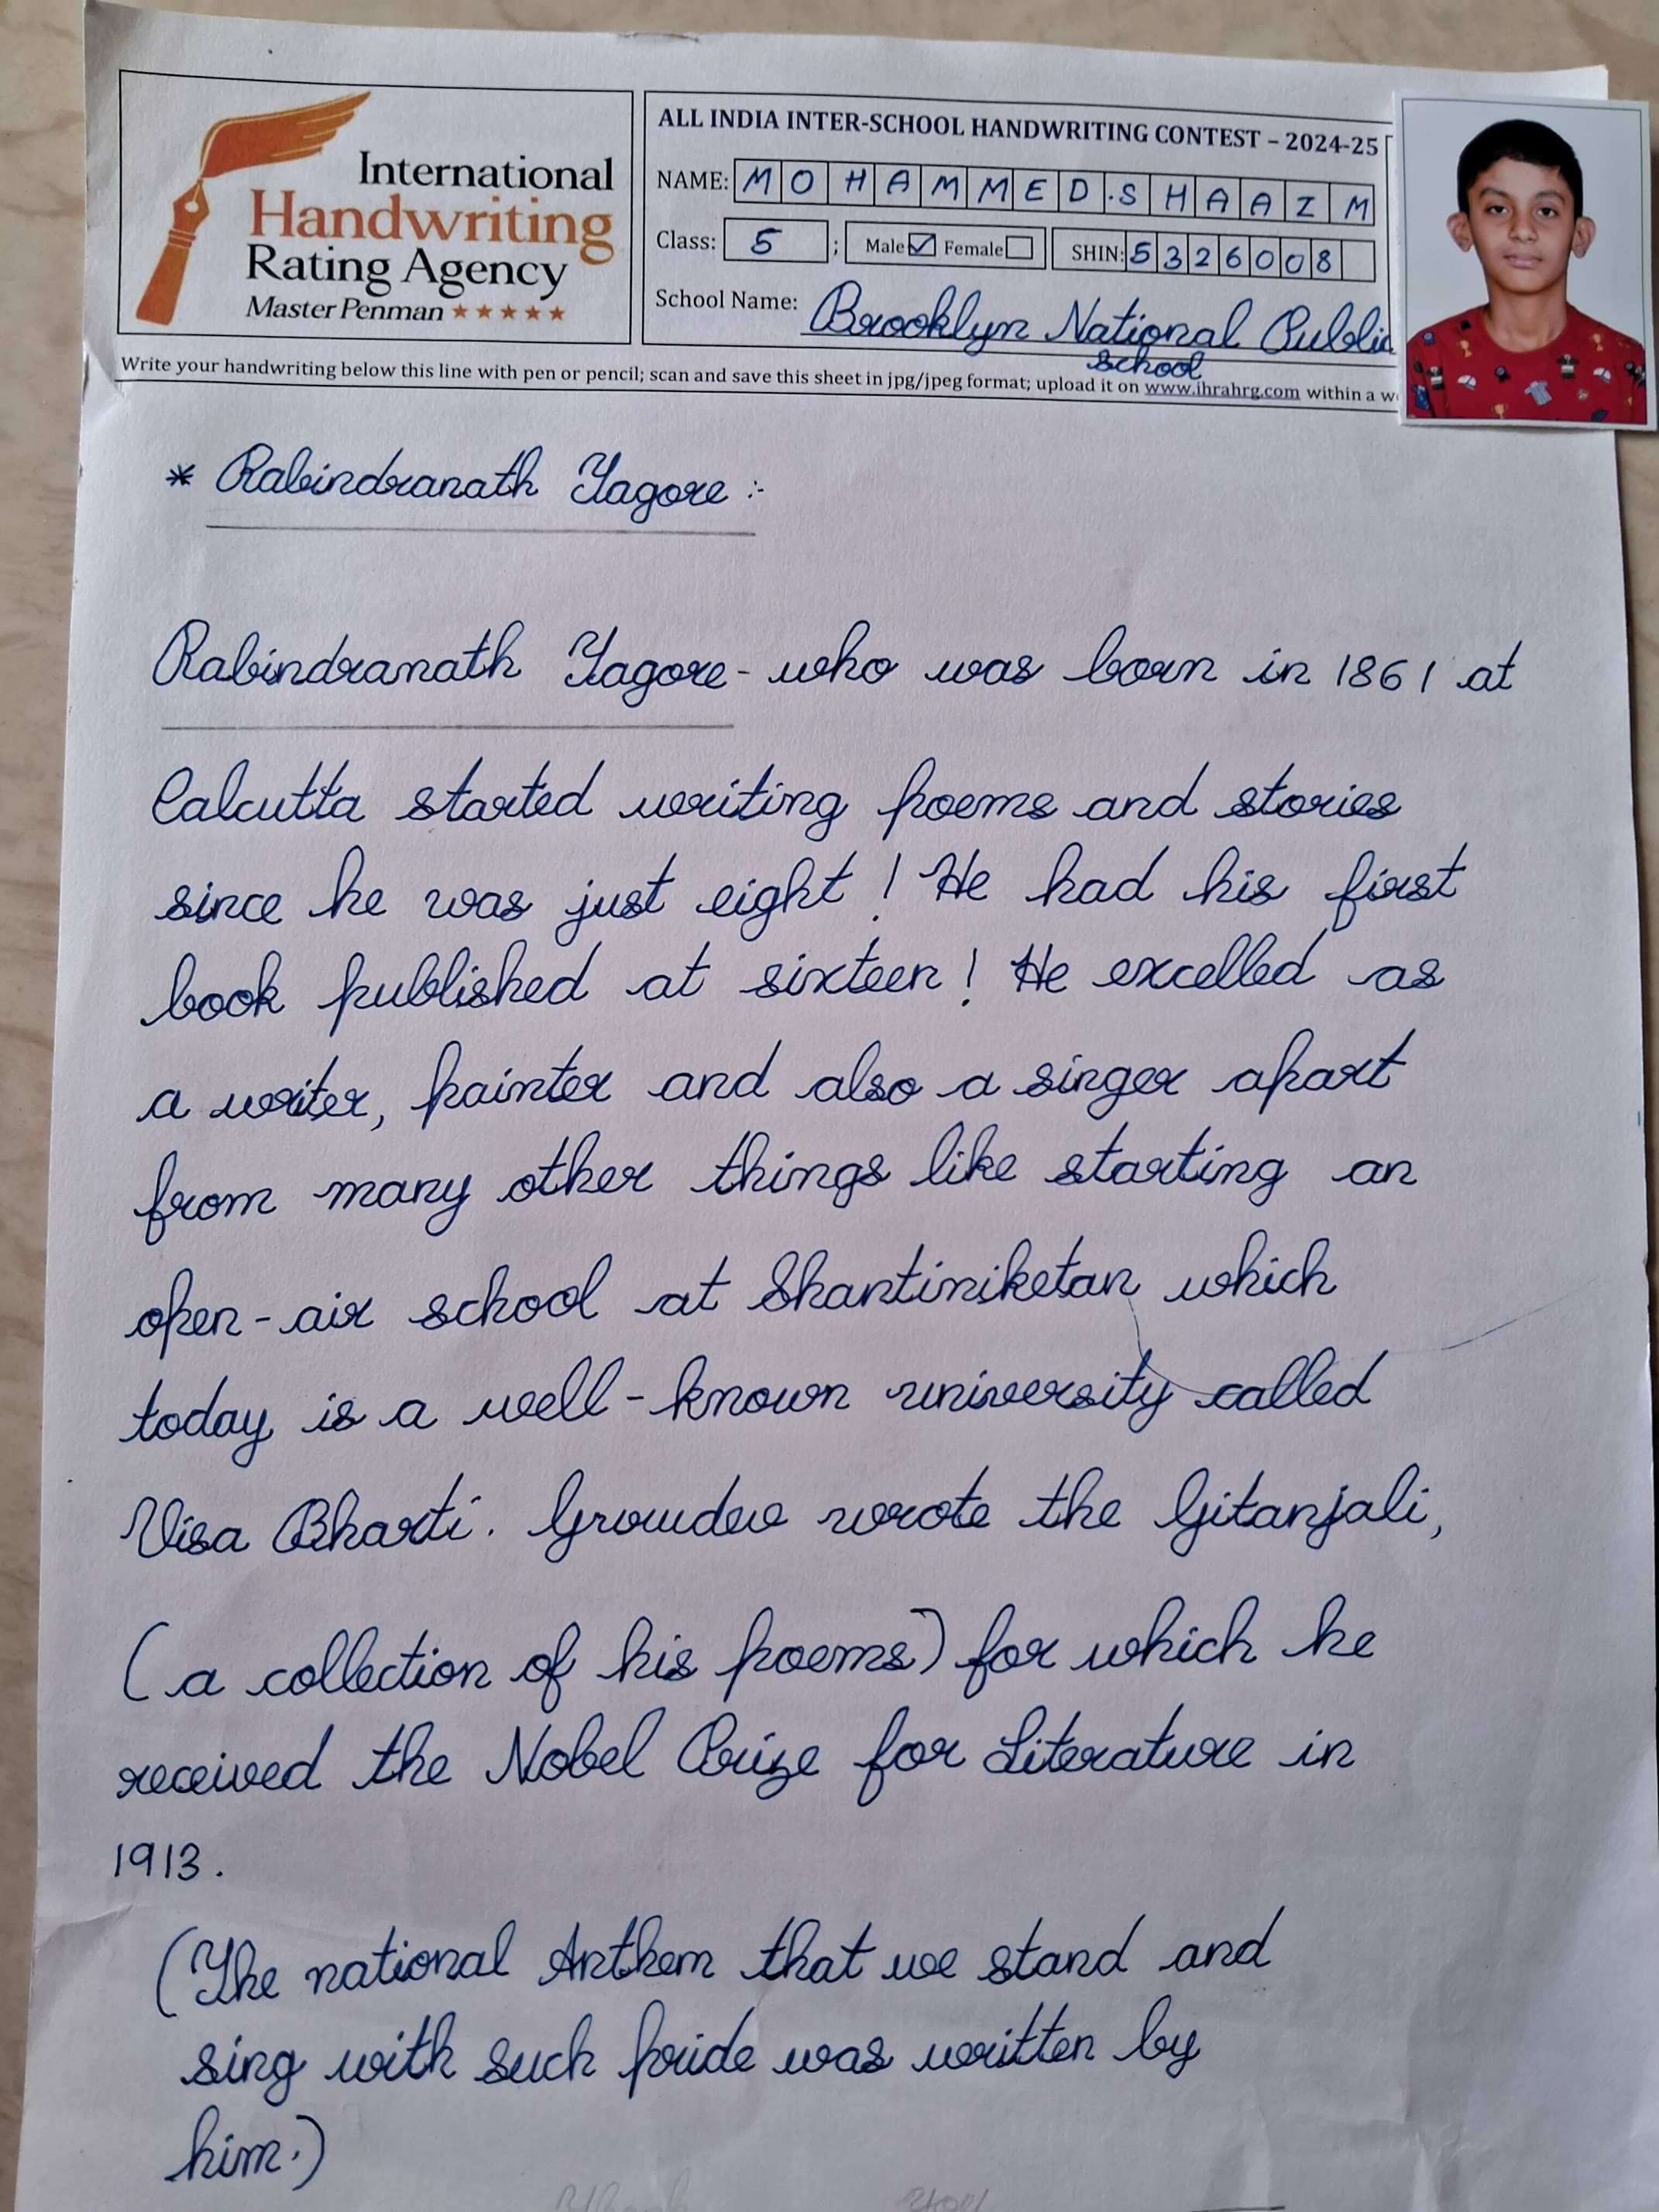 International
Handwriting
Rating Agency
Master Penman ★★★★★
ALL INDIA INTER-SCHOOL HANDWRITING CONTEST – 2024-25
NAME: MOHAMMED.SHAAZM
Class: 5 ; Male ☑ Female ☐ SHIN: 5326008
School Name: Brooklyn National Public
School
Write your handwriting below this line with pen or pencil; scan and save this sheet in jpg/jpeg format; upload it on www.ihrahrg.com within a w
* Rabindranath Tagore :-
Rabindranath Tagore - who was born in 1861 at
Calcutta started writing poems and stories
since he was just eight! He had his first
book published at sixteen! He excelled as
a writer, painter and also a singer apart
from many other things like starting an
open-air school at Shantiniketan which
today is a well-known university called
Visa Bharti. Groudev wrote the Gitanjali,
(a collection of his poems) for which he
received the Nobel Prize for Literature in
1913.
(The national Anthem that we stand and
sing with such pride was written by
him.)